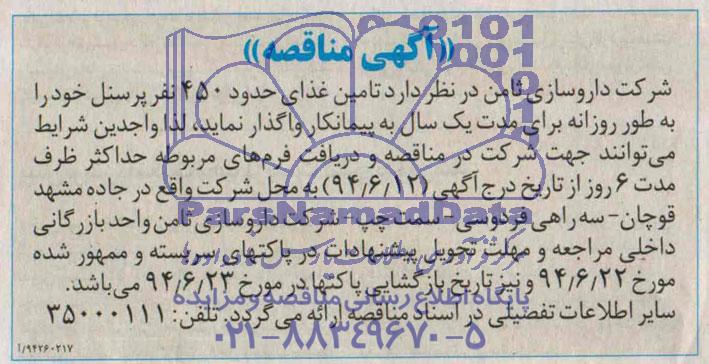 «آگهی مناقصه»
شرکت داروسازی ثامن در نظر دارد تامین غذای حدود ۴۵۰ نفر پرسنل خود را
به طور روزانه برای مدت یک سال به پیمانکار واگذار نماید، لذا واجدین شرایط
می‌توانند جهت شرکت در مناقصه و دریافت فرم‌های مربوطه حداکثر ظرف
مدت ۶ روز از تاریخ درج آگهی (۹۴/۶/۱۲) به محل شرکت واقع در جاده مشهد
قوچان- سه راهی فردوسی- سمت چپ- شرکت داروسازی ثامن واحد بازرگانی
داخلی مراجعه و مهلت تحویل پیشنهادات در پاکتهای سربسته و ممهور شده
مورخ ۹۴/۶/۲۲ و نیز تاریخ بازگشایی پاکتها در مورخ ۹۴/۶/۲۳ می‌باشد.
سایر اطلاعات تفصیلی در اسناد مناقصه ارائه می گردد. تلفن: ۳۵۰۰۰۱۱۱
۱/۹۴۲۶۰۲۱۷
ParsNamadData
پایگاه اطلاع رسانی مناقصه و مزایده
۰۲۱-۸۸۳۴۹۶۷۰-۵